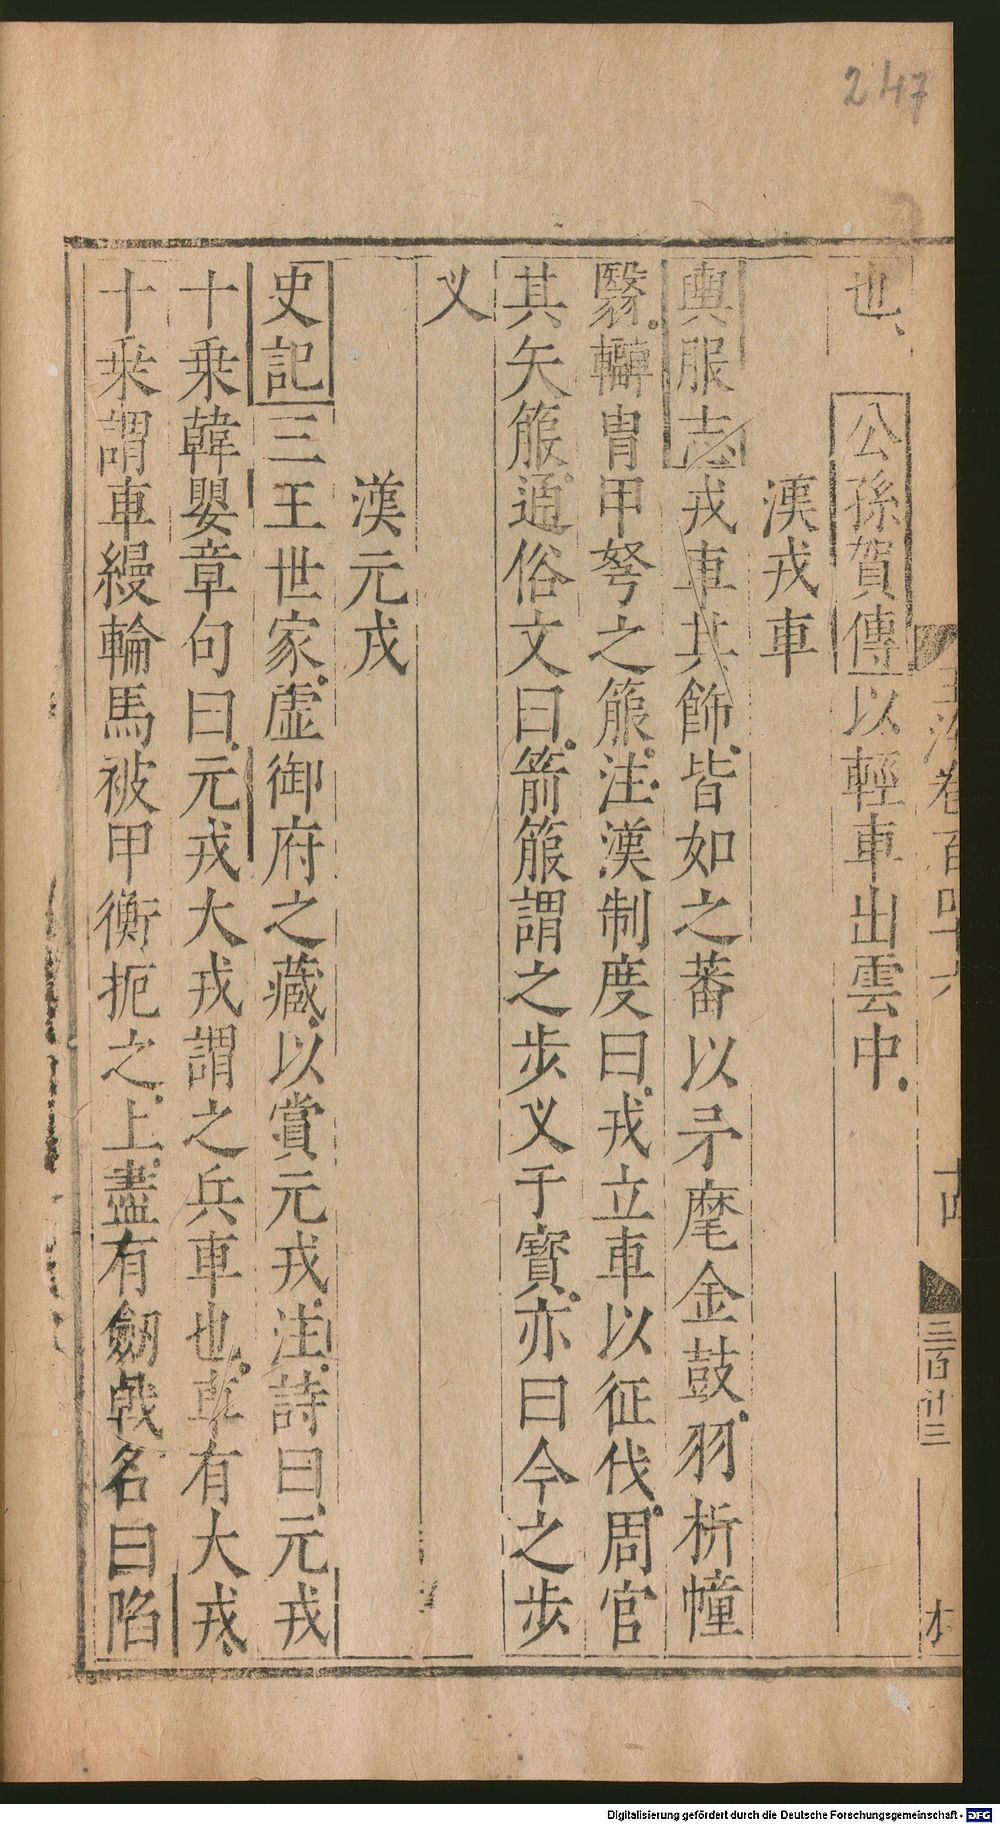 247
也、公孫賀傳以輕車出雲中。
漢戎車
輿服志戎車其飾皆如之蕃以矛麾金鼓羽析幢
翳轓冑甲弩之箙注漢制度曰戎立車以征伐周官
其矢箙通俗文曰箭箙謂之步乂于寶亦曰今之步
乂
漢元戎
史記三王世家虛御府之藏以賞元戎注詩曰元戎
十乗韓嬰章句曰元戎大戎謂之兵車也車有大戎
十乗謂車縵輪馬被甲衡扼之上盡有劒戟名曰陷
卷百四十六
十四
三百卅三
Digitalisierung gefördert durch die Deutsche Forschungsgemeinschaft - DFG